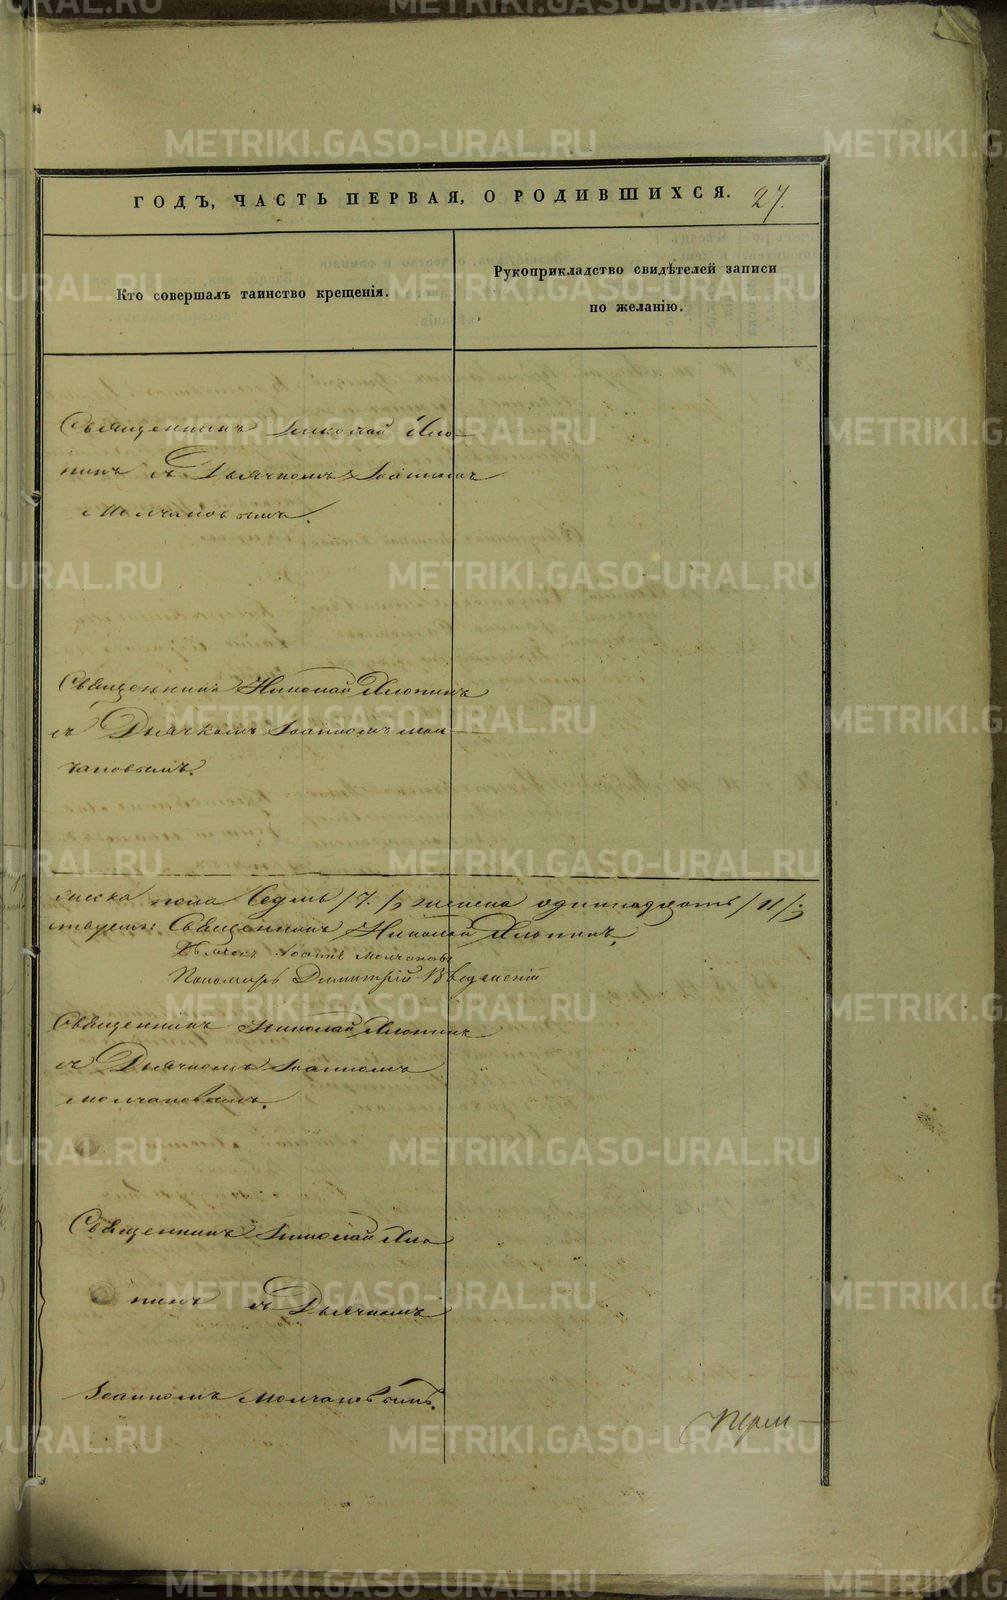 ГОДЪ, ЧАСТЬ ПЕРВАЯ, О РОДИВШИХСЯ. 27.
Кто совершалъ таинство крещенія.
Рукоприкладство свидѣтелей записи
по желанію.
Священникъ Николай Хло-
пинъ съ Дьячкомъ Іоанномъ
Молчановымъ.
Священникъ Николай Хлопинъ
съ Дьячкомъ Іоанномъ Мол
чановымъ.
пола Седмь /7./, женска одиннадцать /11/;
Священникъ Николай Хлопинъ,
Дьячекъ Іоаннъ Молчановъ
Пономарь Димитрій Введенскій
Священникъ Николай Хлопинъ
съ Дьячкомъ Іоанномъ
Молчановымъ.
Священникъ Николай Хло
пинъ съ Дьячкомъ
Іоанномъ Молчановымъ.
METRIKI.GASO-URAL.RU